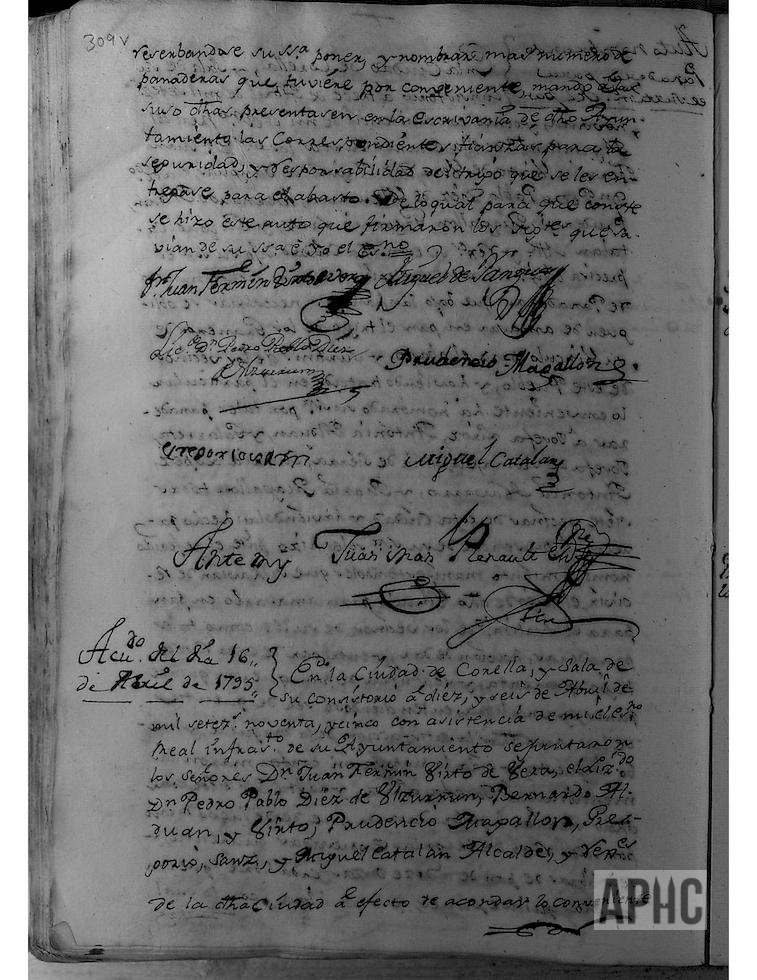 309v
reserbandose su ssa. poner, y nombrar mas numero de
panaderas que tuviere por conveniente, mando a las
suso dhas. presentasen en la escrivania de dho Ayun-
tamiento las Correspondientes fianzas para la
seguridad, y responsabilidad del trigo que se les en-
tregase para el abasto. De lo qual para que conste
se hizo este auto que firmaron los que sa-
vian de su ssa. e yo el esno.
Dn. Juan Fermin Virto de Vera Miguel de
Licdo. Dn. Pedro Pablo Diez
de Ulzurrun
Prudencio Magallon
Gregorio Sanz
Miguel Catalan
Ante my Juan Renault
Acdo. del dia 16
de Abril de 1795
En la Ciudad de Corella, y Sala de
su consistorio a diez, y seis de Abril de
mil setezs. noventa, y cinco con asistencia de mi el esno.
Real infrasto. de su Ayuntamiento se juntaron
los señores Dn. Juan Fermin Virto de Vera, el Lizdo.
Dn. Pedro Pablo Diez de Ulzurrun, Bernardo Al-
duan, y Virto, Prudencio Magallon, Gre-
gorio, Sanz, y Miguel Catalan Alcalde, y
de la dha Ciudad a efecto de acordar lo conveniente
APHC